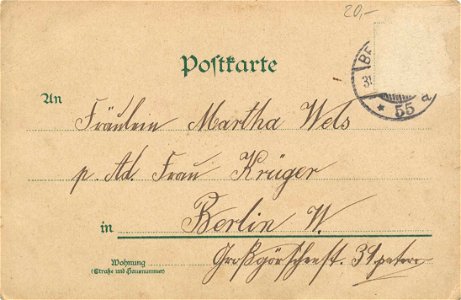 20,-
Postkarte
BE
31
55
a
An
Fräulein Martha Wels
p. Ad. Frau Krüger
in Berlin W.
Wohnung
(Straße und Hausnummer)
Großgörschenst. 39